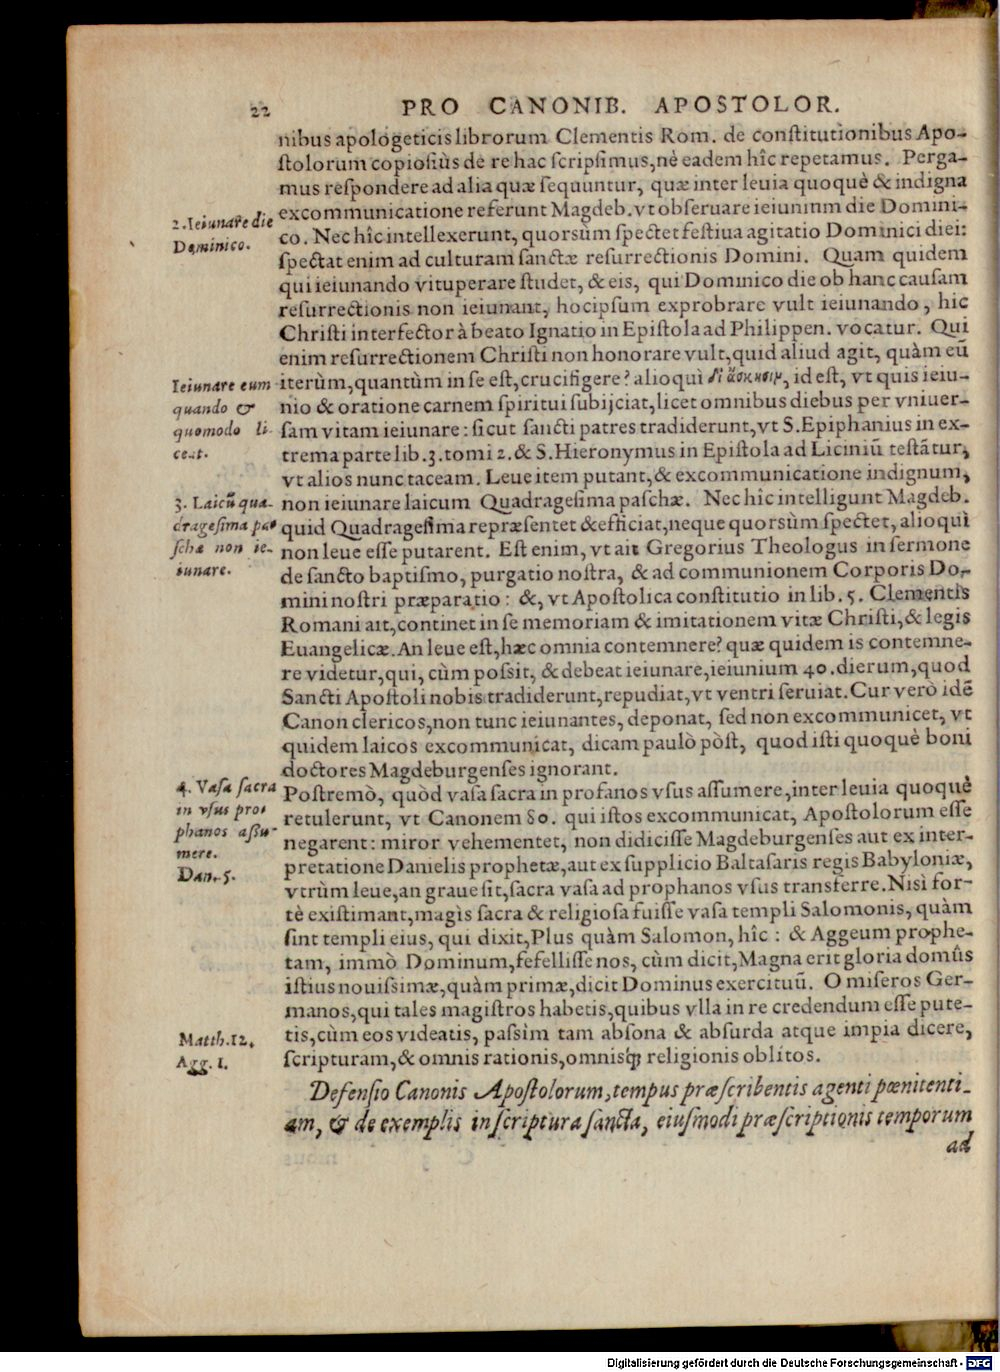 22 PRO CANONIB. APOSTOLOR.
nibus apologeticis librorum Clementis Rom. de constitutionibus Apo-
ſtolorum copioſiùs de re hac ſcripſimus, nè eadem hîc repetamus. Perga-
mus reſpondere ad alia quæ ſequuntur, quæ inter leuia quoquè & indigna
excommunicatione referunt Magdeb. vt obſeruare ieiunium die Domini-
co. Nec hîc intellexerunt, quorsùm ſpectet feſtiua agitatio Dominici diei:
ſpectat enim ad culturam ſanctæ reſurrectionis Domini. Quam quidem
qui ieiunando vituperare ſtudet, & eis, qui Dominico die ob hanc cauſam
reſurrectionis non ieiunant, hoc ipſum exprobrare vult ieiunando, hic
Chriſti interfector à beato Ignatio in Epiſtola ad Philippen. vocatur. Qui
enim reſurrectionem Chriſti non honorare vult, quid aliud agit, quàm eū
iterùm, quantùm in ſe eſt, crucifigere? alioquì δι ἄσκησιν, id eſt, vt quis ieiu-
nio & oratione carnem ſpiritui ſubijciat, licet omnibus diebus per vniuer-
ſam vitam ieiunare: ſicut ſancti patres tradiderunt, vt S. Epiphanius in ex-
trema parte lib. 3. tomi 2. & S. Hieronymus in Epiſtola ad Liciniū teſtātur,
vt alios nunc taceam. Leue item putant, & excommunicatione indignum,
non ieiunare laicum Quadrageſima paſchæ. Nec hîc intelligunt Magdeb.
quid Quadrageſima repræſentet & efficiat, neque quorsùm ſpectet, alioquì
non leue eſſe putarent. Eſt enim, vt ait Gregorius Theologus in ſermone
de ſancto baptiſmo, purgatio noſtra, & ad communionem Corporis Do-
mini noſtri præparatio: &, vt Apoſtolica conſtitutio in lib. 5. Clementis
Romani ait, continet in ſe memoriam & imitationem vitæ Chriſti, & legis
Euangelicæ. An leue eſt, hæc omnia contemnere? quæ quidem is contemne-
re videtur, qui, cùm poſsit, & debeat ieiunare, ieiunium 40. dierum, quod
Sancti Apoſtoli nobis tradiderunt, repudiat, vt ventri ſeruiat. Cur verò idē
Canon clericos, non tunc ieiunantes, deponat, ſed non excommunicet, vt
quidem laicos excommunicat, dicam paulò pòſt, quod iſti quoquè boni
doctores Magdeburgenſes ignorant.
Poſtremò, quòd vaſa ſacra in profanos vſus aſſumere, inter leuia quoquè
retulerunt, vt Canonem 80. qui iſtos excommunicat, Apoſtolorum eſſe
negarent: miror vehementet, non didiciſſe Magdeburgenſes aut ex inter-
pretatione Danielis prophetæ, aut ex ſupplicio Baltaſaris regis Babyloniæ,
vtrùm leue, an graue ſit, ſacra vaſa ad prophanos vſus transferre. Niſì for-
tè exiſtimant, magìs ſacra & religioſa fuiſſe vaſa templi Salomonis, quàm
ſint templi eius, qui dixit, Plus quàm Salomon, hîc: & Aggeum prophe-
tam, immò Dominum, fefelliſſe nos, cùm dicit, Magna erit gloria domûs
iſtius nouiſsimæ, quàm primæ, dicit Dominus exercituū. O miſeros Ger-
manos, qui tales magiſtros habetis, quibus vlla in re credendum eſſe pute-
tis, cùm eos videatis, paſsìm tam abſona & abſurda atque impia dicere,
ſcripturam, & omnis rationis, omnisq́; religionis oblítos.
Defenſio Canonis Apoſtolorum, tempus præſcribentis agenti pœnitenti-
am, & de exemplis in ſcriptura ſancta, eiuſmodi præſcriptionis temporum
ad
2. Ieiunare die
Dominico.
Ieiunare eum
quando &
quomodo li-
ceat.
3. Laicū qua-
drageſima pa-
ſchæ non ie-
iunare.
4. Vaſa ſacra
in vſus pro-
phanos aſſu-
mere.
Dan. 5.
Matth. 12.
Agg. 1.
Digitalisierung gefördert durch die Deutsche Forschungsgemeinschaft - DFG